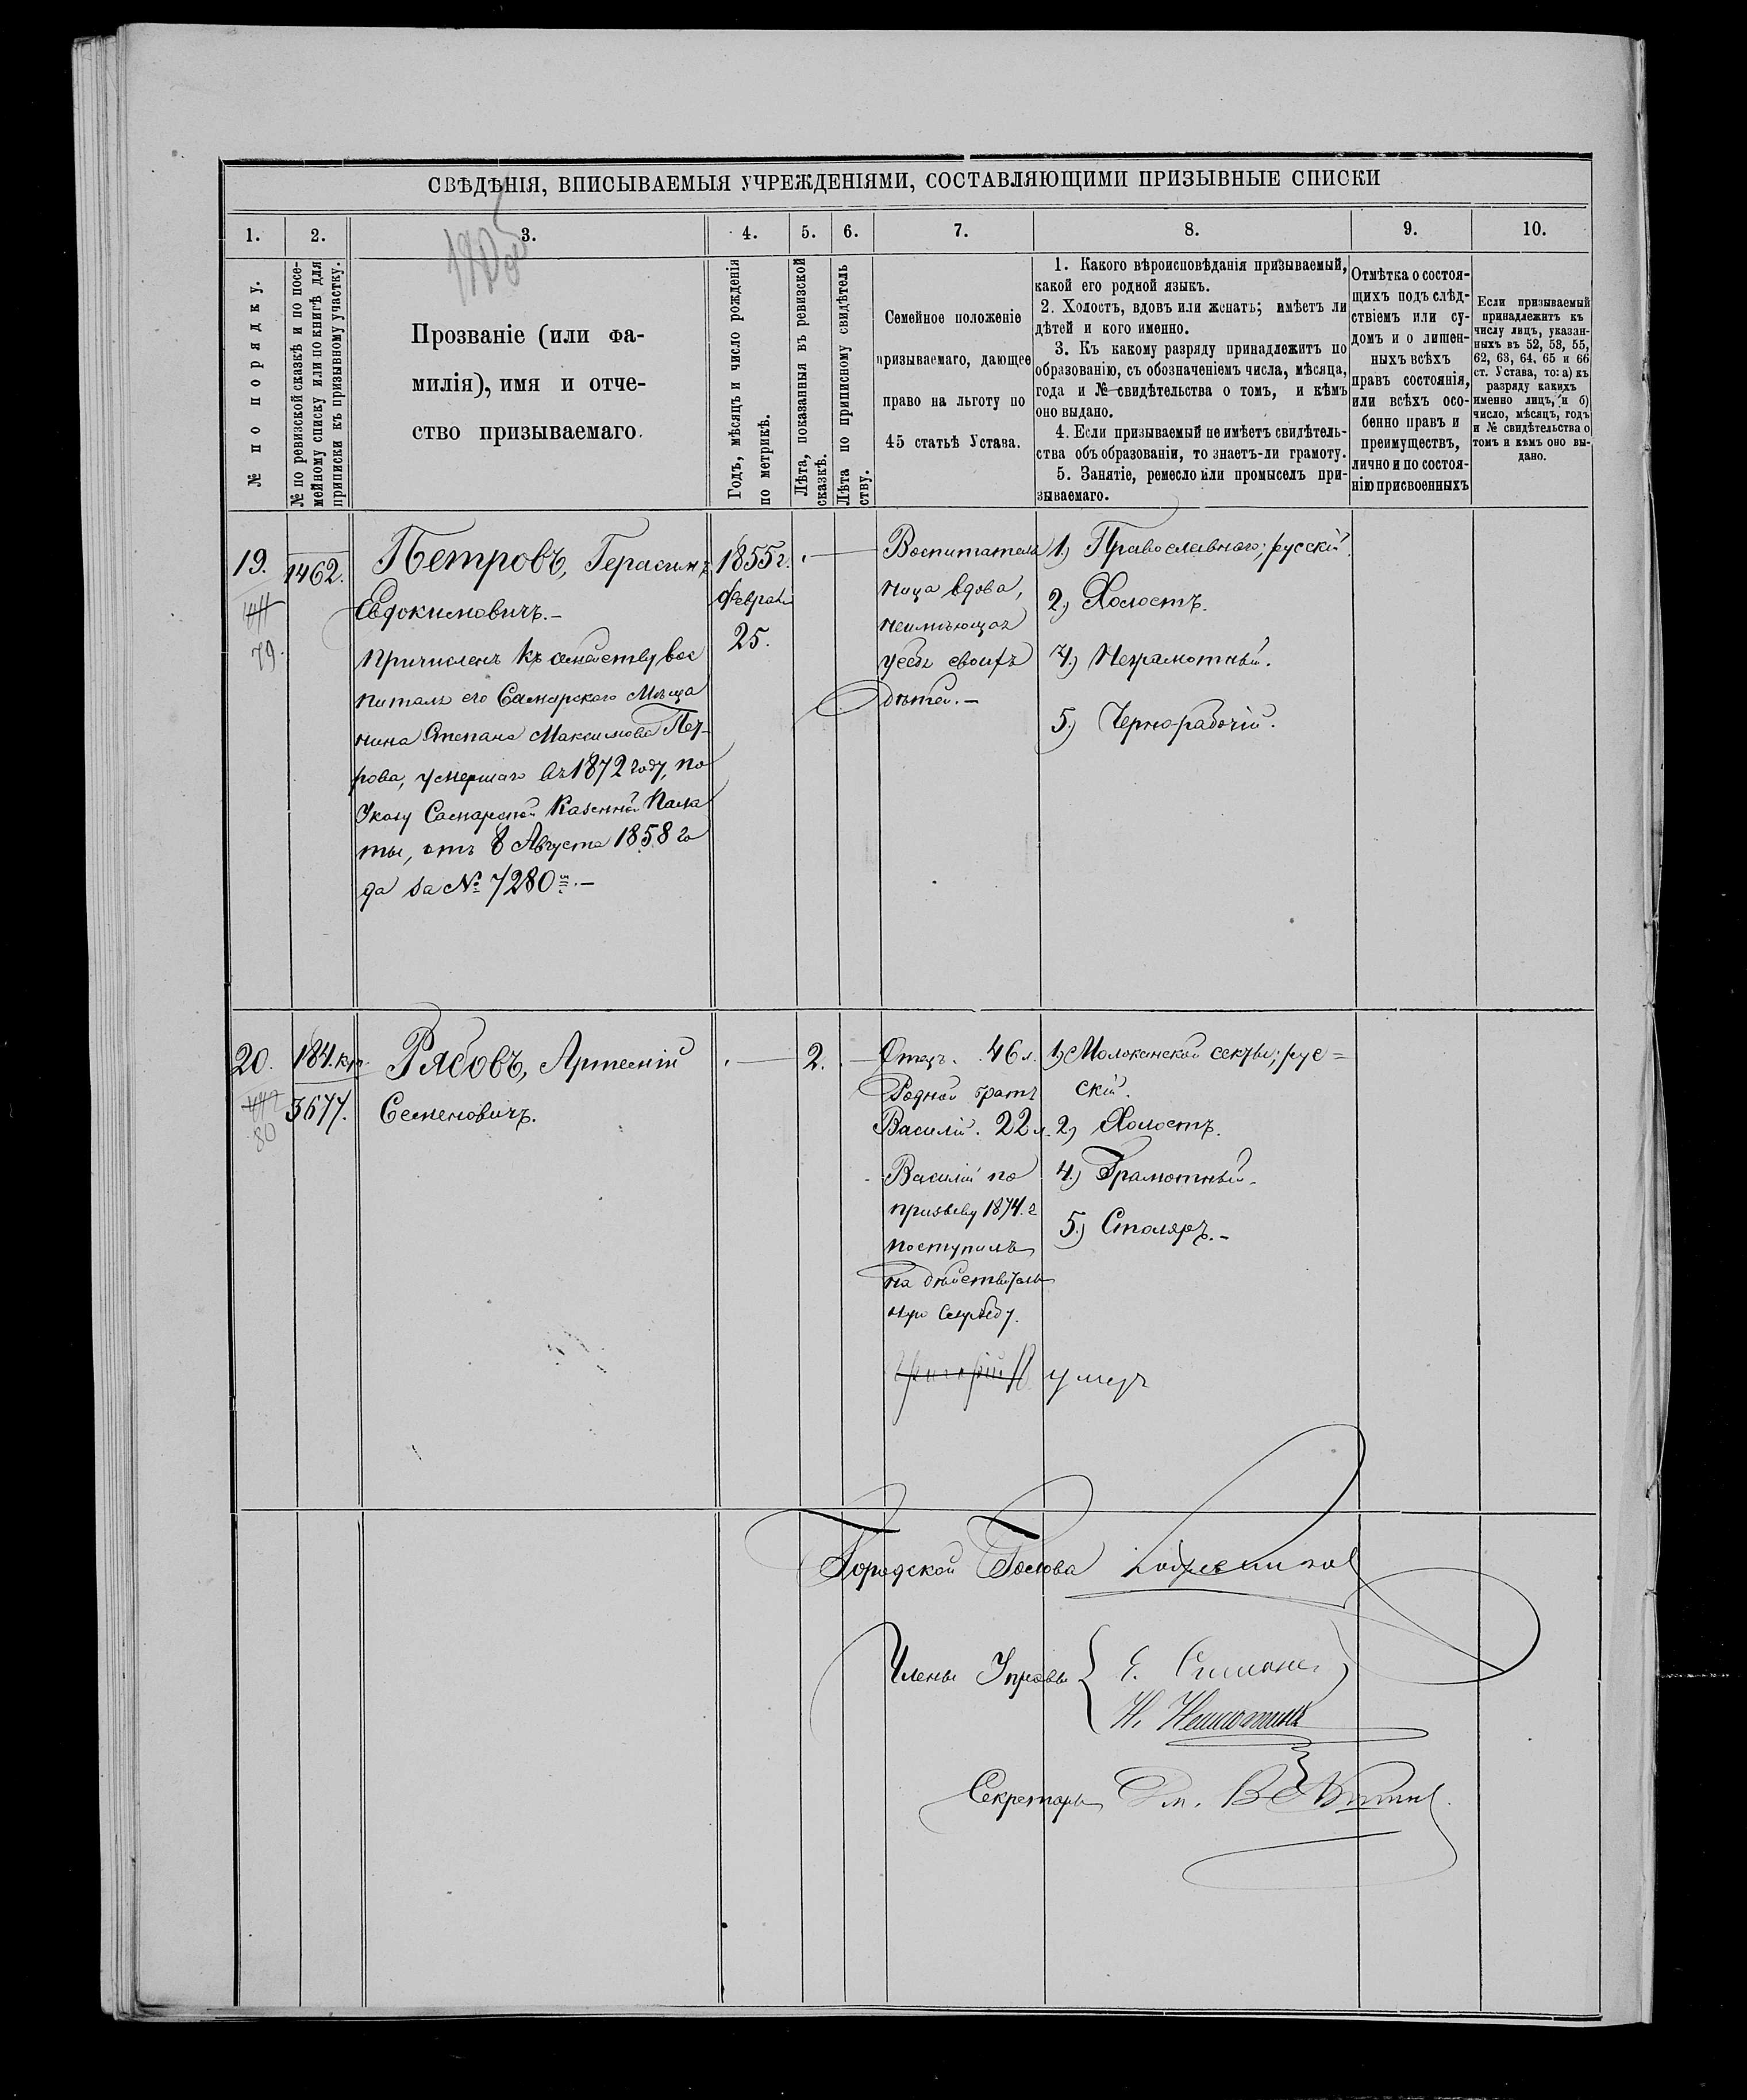 СВѢДѢНІЯ, ВПИСЫВАЕМЫЯ УЧРЕЖДЕНІЯМИ, СОСТАВЛЯЮЩИМИ ПРИЗЫВНЫЕ СПИСКИ
1.
2.
3.
4.
5.
6.
7.
8.
9.
10.
№ по порядку.
№ по ревизской сказкѣ и по посе-
мейному списку или по книгѣ для
приписки къ призывному участку.
Прозваніе (или фа-
милія), имя и отче-
ство призываемаго.
Годъ, мѣсяцъ и число рожденія
по метрикѣ.
Лѣта, показанныя въ ревизской
сказкѣ.
Лѣта по приписному свидѣтель
ству.
Семейное положеніе
призываемаго, дающее
право на льготу по
45 статьѣ Устава.
1. Какого вѣроисповѣданія призываемый,
какой его родной языкъ.
2. Холостъ, вдовъ или женатъ; имѣетъ ли
дѣтей и кого именно.
3. Къ какому разряду принадлежитъ по
образованію, съ обозначеніемъ числа, мѣсяца,
года и № свидѣтельства о томъ, и кѣмъ
оно выдано.
4. Если призываемый не имѣетъ свидѣтель-
ства объ образованіи, то знаетъ-ли грамоту.
5. Занятіе, ремесло или промыселъ при-
зываемаго.
Отмѣтка о состоя-
щихъ подъ слѣд-
ствіемъ или су-
домъ и о лишен-
ныхъ всѣхъ
правъ состоянія,
или всѣхъ осо-
бенно правъ и
преимуществъ,
лично и по состоя-
нію присвоенныхъ
Если призываемый
принадлежитъ къ
числу лицъ, указан-
ныхъ въ 52, 58, 55,
62, 63, 64, 65 и 66
ст. Устава, то: а) къ
разряду какихъ
именно лицъ, и б)
число, мѣсяцъ, годъ
и № свидѣтельства о
томъ и кѣмъ оно вы-
дано.
19.
79.
1462.
Петровъ, Герасимъ
Евдокимовичъ.-
Причисленъ къ семейству вос
питалъ его Самарскаго Мѣща
нина Степана Максимова Пет-
рова, умершаго въ 1872 году, по
Указу Самарской Казенной Пала
ты, отъ 8 Августа 1858 го
да за № 7280.-
1855 г.
Февраля
25.
Воспитатель
ница вдова,
неимѣющая
у себя своихъ
дѣтей.-
1) Православнаго; русскій.
2) Холостъ.
4.) Неграмотный.
5.) Чернорабочій.
20.
80
184. кр.
3677.
Рябовъ, Артемій
Семеновичъ.
2.
Отецъ. 46 л.
Родной братъ
Василій. 22 л.
Василій по
призыву 1874. г
поступилъ
на дѣйствитель
ную службу.
1) Молоканской секты; рус=
скій.
2) Холостъ.
4.) Грамотный.
5.) Столяръ.-
умеръ
Городской Голова
Члены Управы
Секретарь